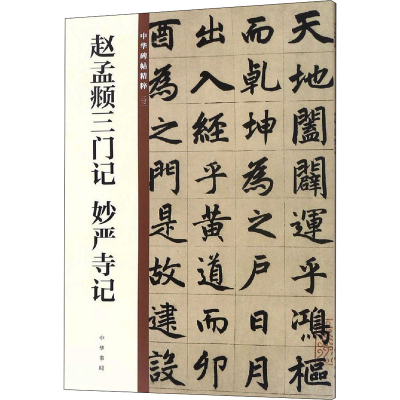 赵孟𫖯三门记 妙严寺记
中华书局
中华碑帖精粹
天地闔闢運乎鴻樞
而乾坤為之戶日月
出入經乎黃道而卯
酉為之門是故建設